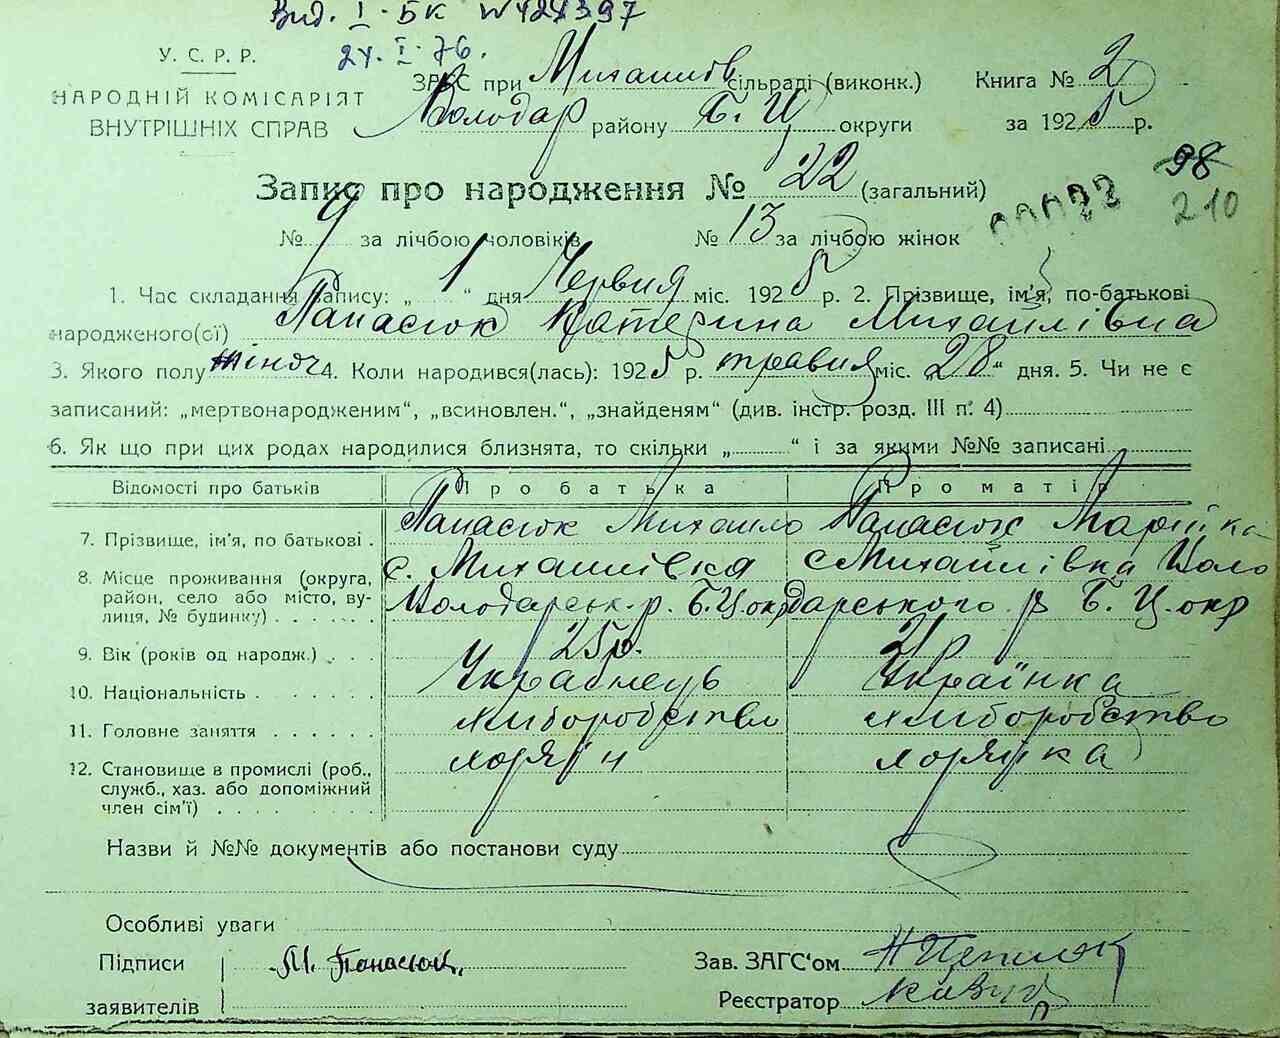 Вид. І-БК №427397
27. І. 76.
У. С. Р. Р.
НАРОДНІЙ КОМІСАРІЯТ
ВНУТРІШНІХ СПРАВ
ЗАГС при Михайлів сільраді (виконк.) Книга № 2
Володар району Б. Ц. округи за 1925 р.
Запис про народження № 22 (загальний)
98
210
№ 9 за лічбою чоловіків № 13 за лічбою жінок
1. Час складання запису: „1“ дня Червня міс. 1925 р. 2. Прізвище, ім'я, по-батькові
народженого(сї) Панасюк Катерина Михайлівна
3. Якого полу жіноч 4. Коли народився(лась): 1925 р. травня міс. „28“ дня. 5. Чи не є
записаний: „мертвонародженим“, „всиновлен.“, „знайденям“ (див. інстр. розд. III п. 4)
6. Як що при цих родах народилися близнята, то скільки „ “ і за якими №№ записані
Відомості про батьків Про батька Про матір
7. Прізвище, ім'я, по батькові . Панасюк Михайло Панасюк Марійка
8. Місце проживання (округа, район, село або місто, вулиця, № будинку) . . . . . . с. Михайлівка Володарськ. р. Б.Ц. окр с Михайлівка Володарського р Б. Ц. окр
9. Вік (років од народж.) . . . 25 р. 21 р
10. Національність . . . . . . Українець Українка
11. Головне заняття . . . . . . хліборобство хліборобство
12. Становище в промислі (роб., служб., хаз. або допоміжний член сім'ї) . . . . . . .
Назви й №№ документів або постанови суду
Особливі уваги
Підписи М. Панасюк. Зав. ЗАГС'ом
заявителів Реєстратор